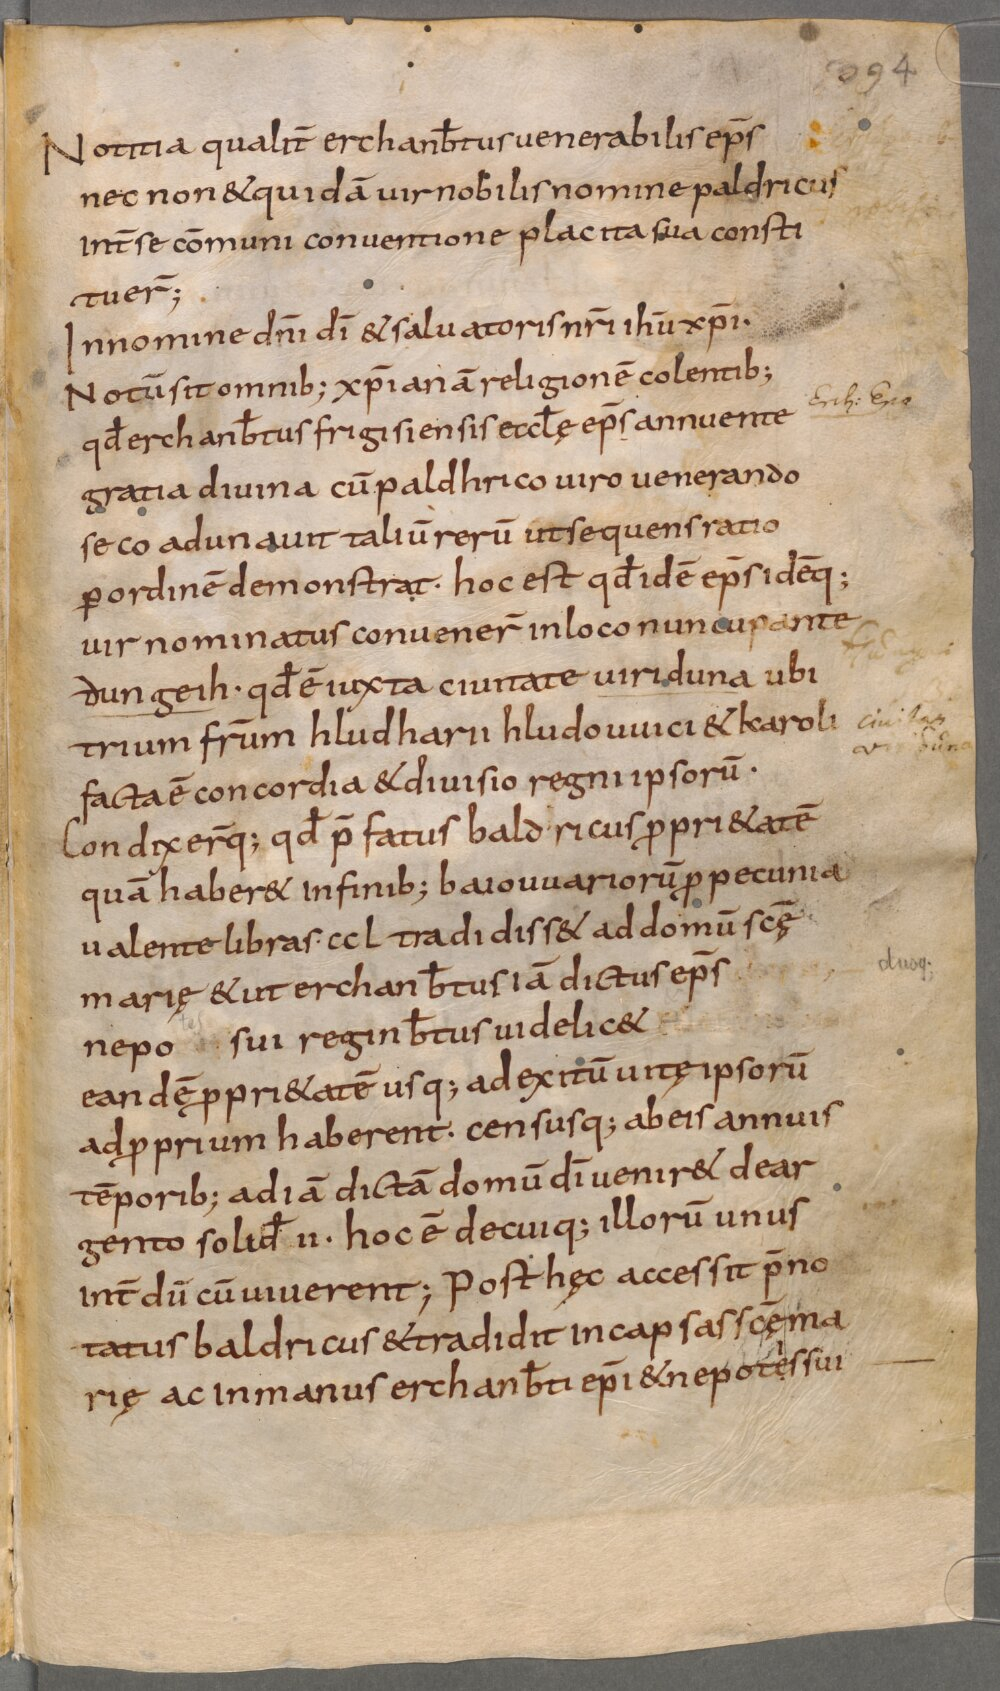 394
Notitia qualit̄ erchanb̄tus venerabilis ep̄s
nec non & quidā vir nobilis nomine paldricus
int̄ se cōmuni conventione placita sua consti
tuer̄;
In nomine dn̄i dī & salvatoris nr̄i ihū xp̄i.
Notū sit omnib; xp̄ianā religionē colentib;
qd̄ erchanb̄tus frigisiensis eccl̄ę ep̄s annuente
Erch: Epo
gratia divina cū paldhrico viro venerando
se coadunavit taliū rerū ut sequens ratio
ꝑ ordinē demonstrat. hoc est qd̄ idē ep̄s idēq;
vir nominatus convener̄ in loco nuncupante
dungeih. qd̄ ē iuxta civitate viriduna ubi
trium fr̄um hludharii hludouuici & karoli
civitas
facta ē concordia & divisio regni ipsorū.
Condixer̄q; qd̄ p̄fatus baldricus ꝓpri&atē
quā haber& in finib; baiouuariorū ꝓ pecunia
valente libras ccl tradidiss& ad domū scę̄
marię & ut erchanb̄tus iā dictus ep̄s
duoq;
nepotes sui reginb̄tus videlic&
eandę̄ ꝓpri&atē usq; ad exitū vitę ipsorū
ad ꝓprium haberent. censusq; ab eis annuis
tēporib; ad iā dictā domū dī venir& de ar
gento solid̄ ii. hoc ē de cuiq; illorū unus
int̄dū cū viverent; Post hęc accessit p̄no
tatus baldricus & tradidit in capsas scę̄ ma
rię ac in manus erchanb̄ti ep̄i & nepotes sui